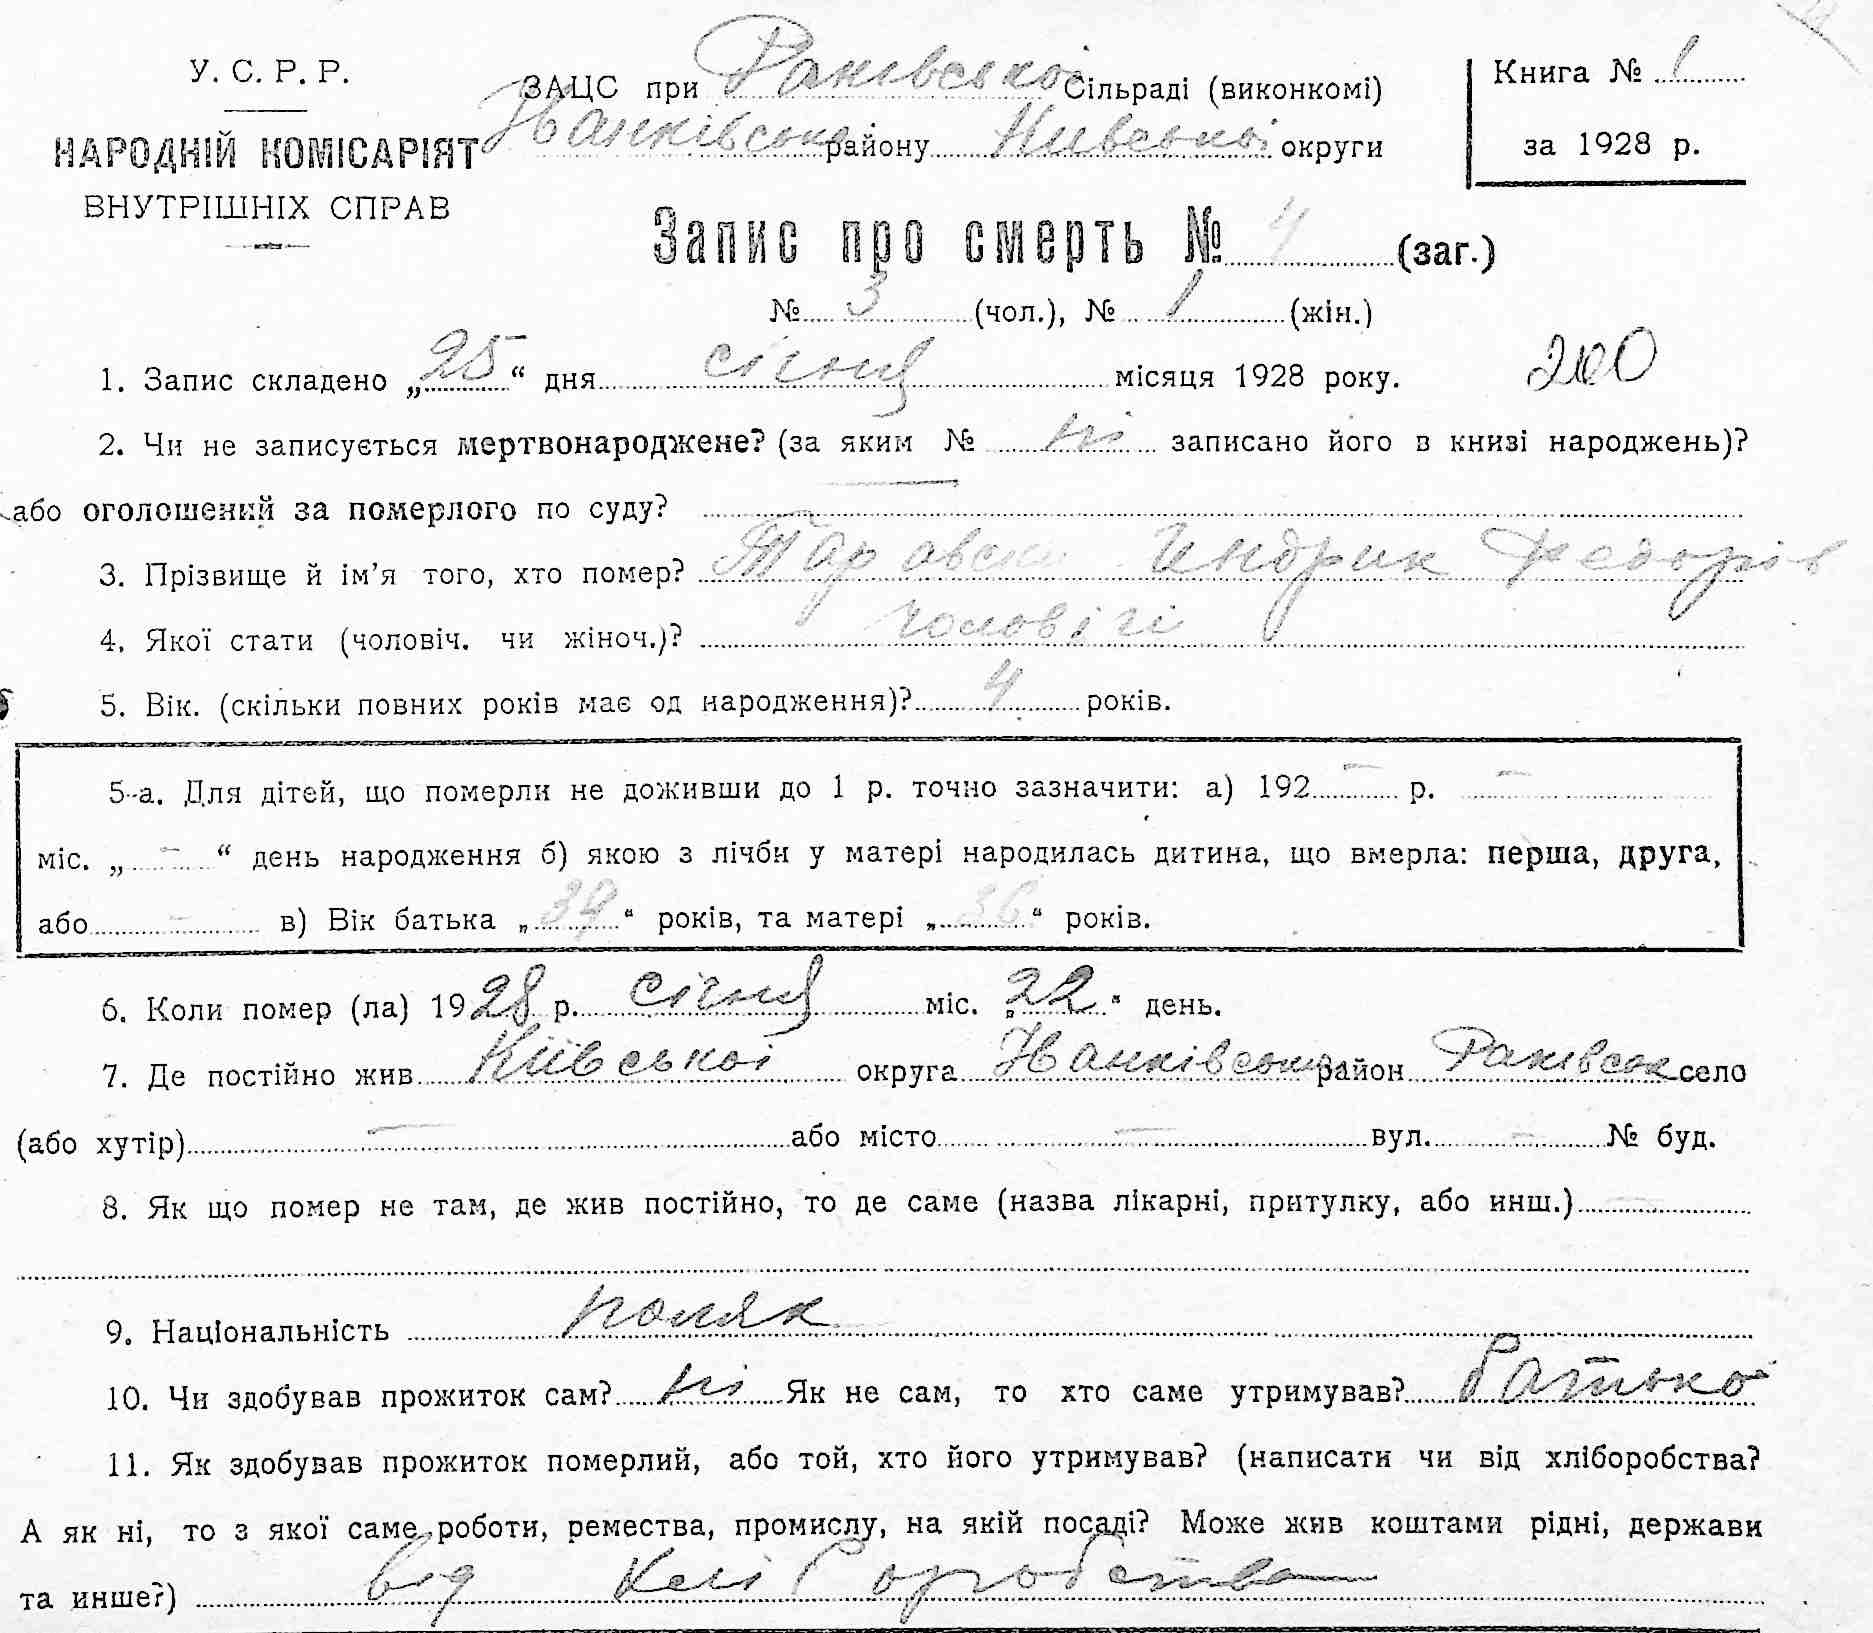 У. С. Р. Р.
НАРОДНІЙ КОМІСАРІЯТ
ВНУТРІШНІХ СПРАВ
ЗАЦС при Раківської Сільраді (виконкомі)
району Київської округи
Книга № 1
за 1928 р.
Запис про смерть № 4 (заг.)
№ 3 (чол.), № 1 (жін.)
1. Запис складено „25“ дня січня місяця 1928 року.
200
2. Чи не записується мертвонароджене? (за яким № ні записано його в книзі народжень)?
або оголошений за померлого по суду?
3. Прізвище й ім’я того, хто помер? Федорів
4. Якої стати (чоловіч. чи жіноч.)? чоловічі
5. Вік. (скільки повних років має од народження)? 4 років.
5-а. Для дітей, що померли не доживши до 1 р. точно зазначити: а) 192 – р. –
міс. „ – “ день народження б) якою з лічби у матері народилась дитина, що вмерла: перша, друга,
або – в) Вік батька „39“ років, та матері „36“ років.
6. Коли помер (ла) 1928 р. січня міс. „22“ день.
7. Де постійно жив Київської округа район Раківськ село
(або хутір) – або місто – вул. – № буд.
8. Як що помер не там, де жив постійно, то де саме (назва лікарні, притулку, або инш.) –
9. Національність поляк
10. Чи здобував прожиток сам? ні Як не сам, то хто саме утримував? батько
11. Як здобував прожиток померлий, або той, хто його утримував? (написати чи від хліборобства?
А як ні, то з якої саме роботи, ремества, промислу, на якій посаді? Може жив коштами рідні, держави
та инше?) від хліборобства